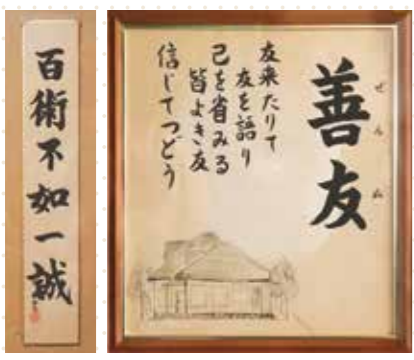 百術不如一誠
善友
ぜんゆ
友来たりて
友を語り
己を省みる
皆よき友
信じてつどう